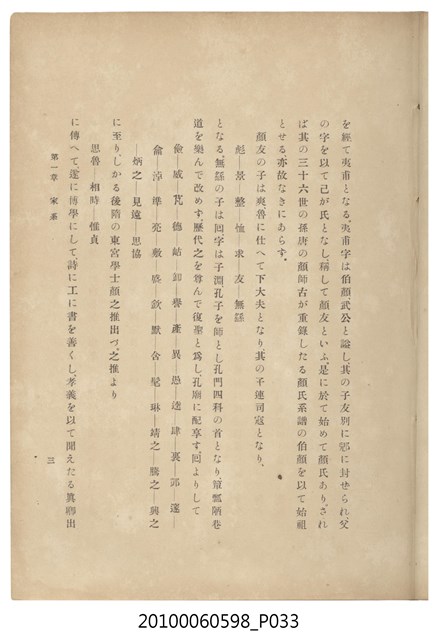 を經て夷甫となる、夷甫字は伯顏武公と謚し、其の子友別に郳に封せられ、父
の字を以て己が氏となし、稱して顏友といふ、是に於て始めて顏氏あり。され
ば其の三十六世の孫唐の顏師古が重錄したる顏氏系譜の伯顏を以て始祖
とせる亦故なきにあらず。
顏友の子は夷魯に仕へて下大夫となり、其の子連司寇となり、
彪—景—整—恤—求—友—無繇—
となる、無繇の子は囘字は子淵孔子を師とし孔門四科の首となり、簞瓢陋巷
道を樂んで改めず、歷代之を尊んで復聖と爲し、孔廟に配享す、囘よりして
儉—威—芃—億—岵—卸—譽—產—異—愚—逵—肆—裏—邱—邃—
龠—淖—準—亮—敷—盛—歆—默—含—髦—琳—靖之—騰之—興之
—炳之—見遠—思協
に至り、しかる後隋の東宮學士顏之推出づ、之推より
思魯—相時—惟貞
に傳へて、遂に博學にして詩に工に書を善くし、孝義を以て聞えたる眞卿出
第一章 家系
三
20100060598_P033